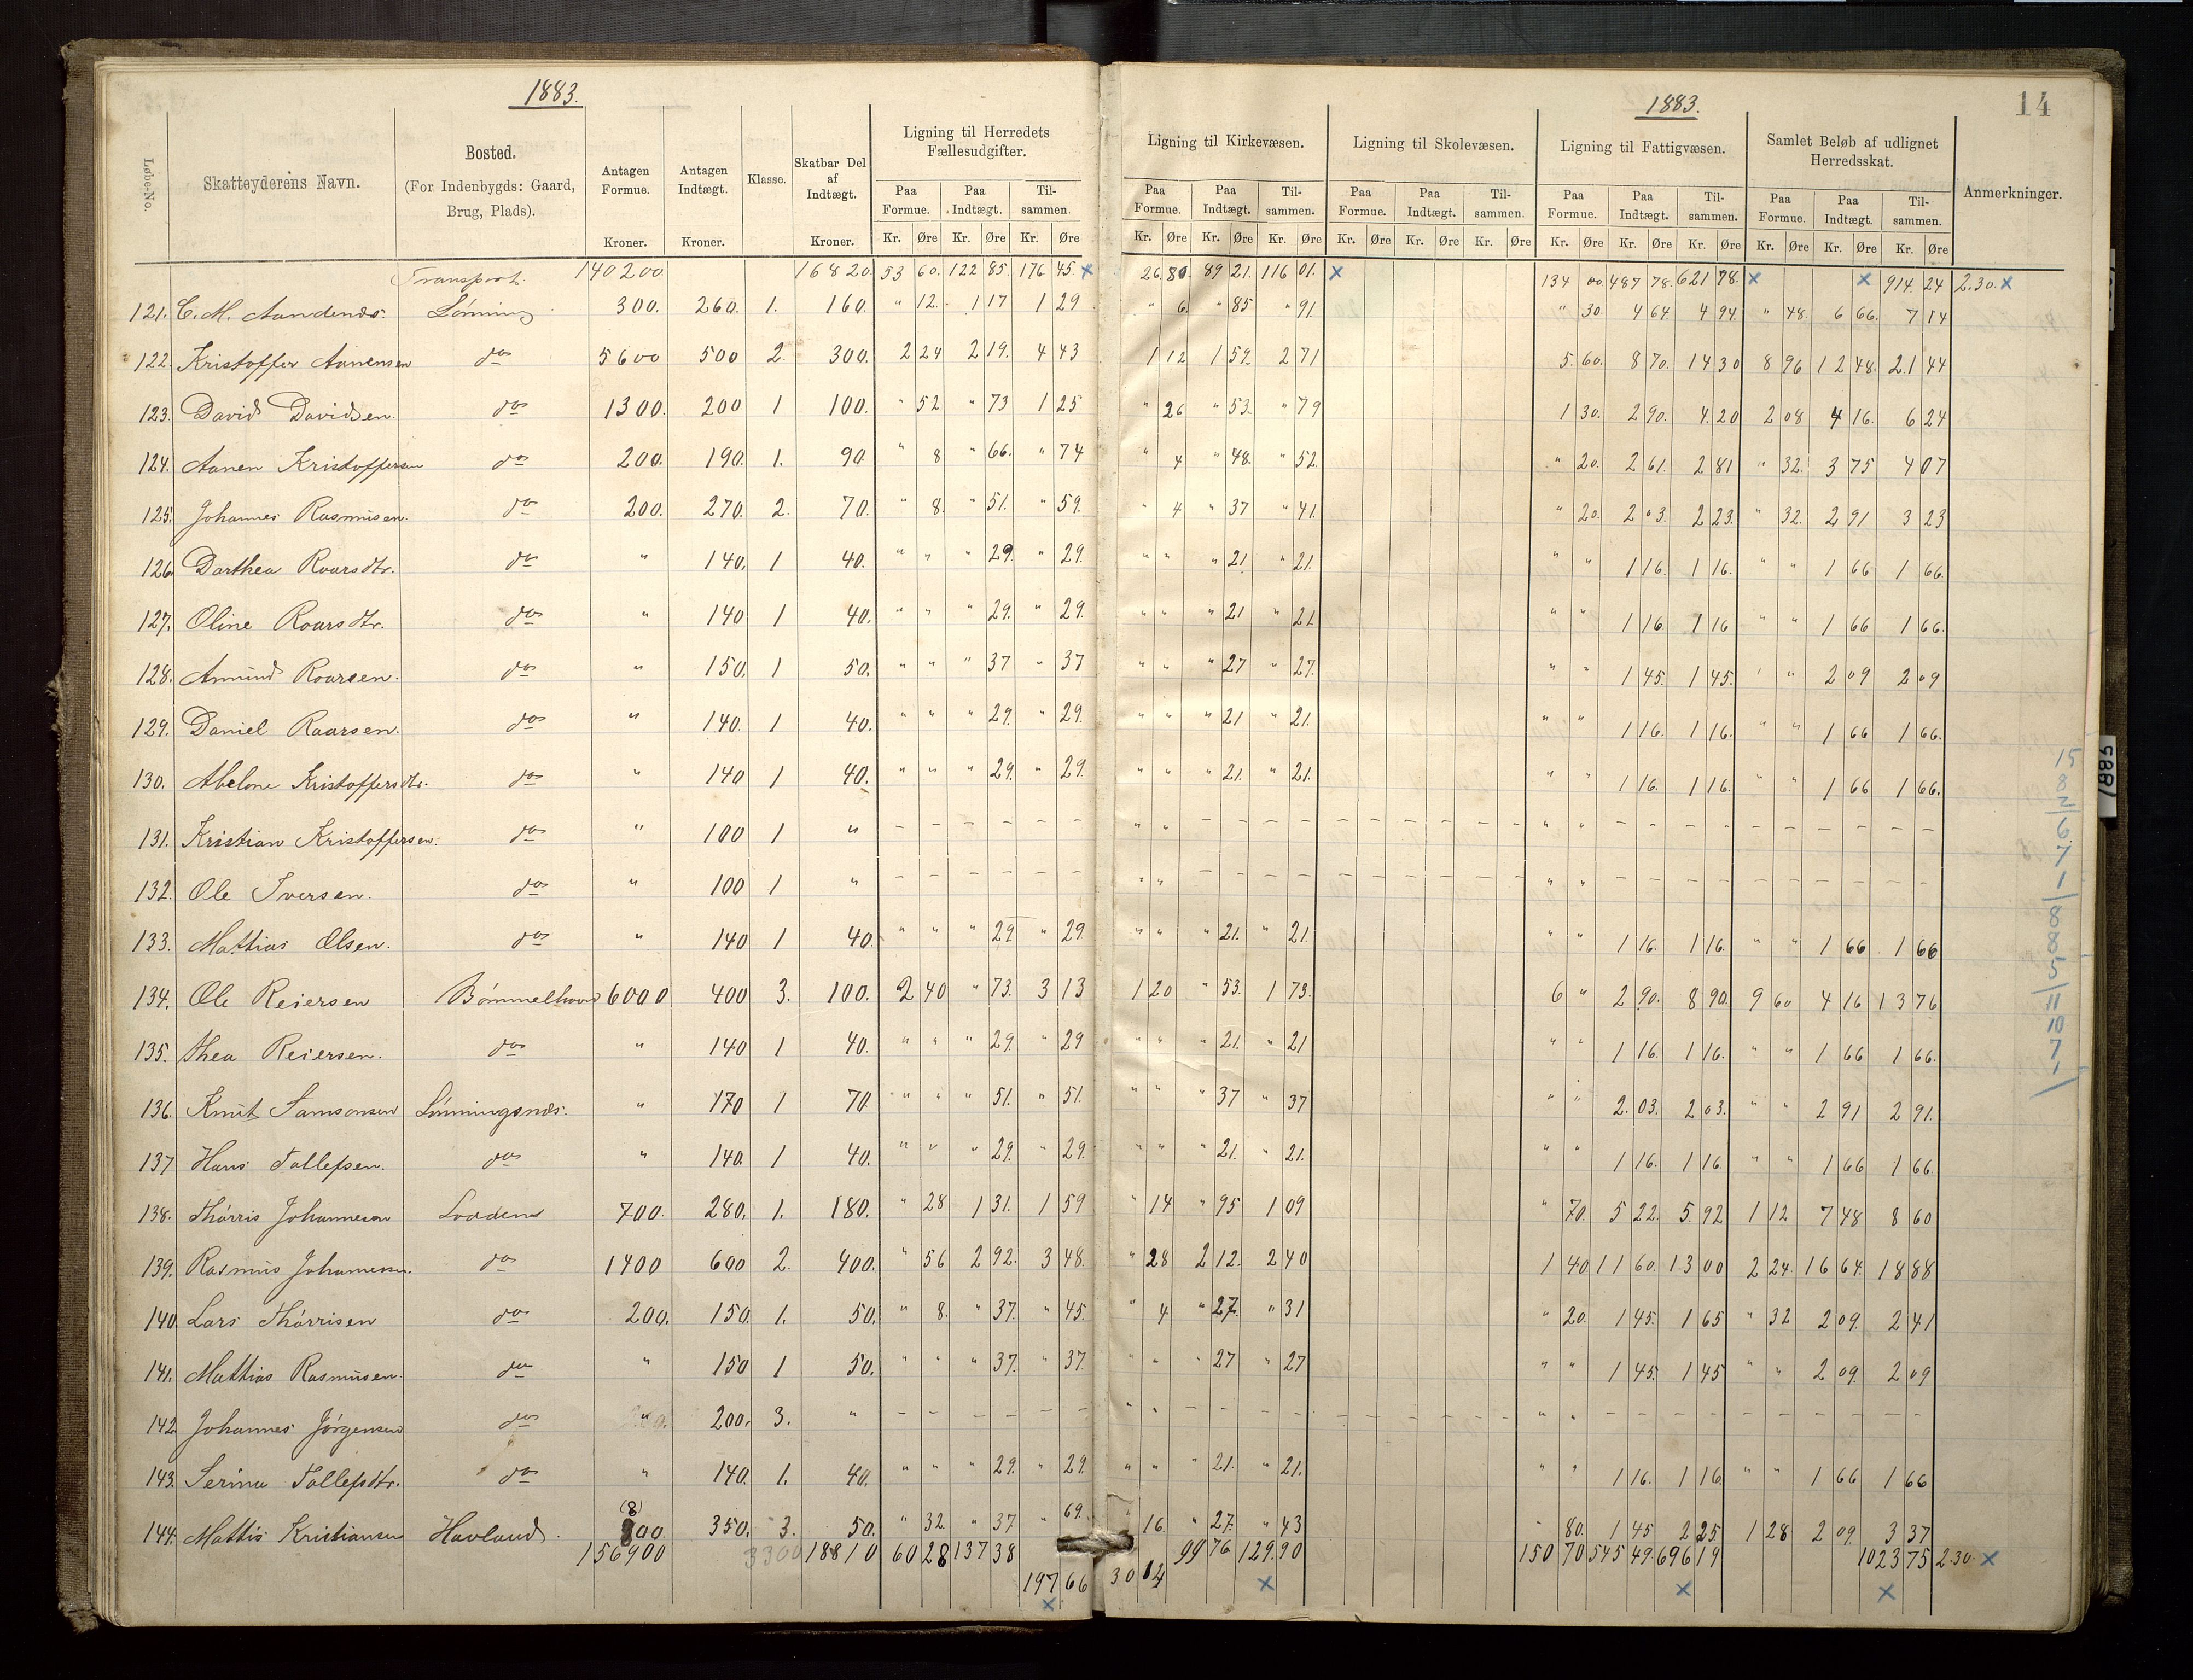 1883.
1883.
14
Løbe-No. Skatteyderens Navn. Bosted. (For Indenbygds: Gaard, Brug, Plads). Antagen Formue. Kroner. Antagen Indtægt. Kroner. Klasse. Skatbar Del af Indtægt. Kroner. Ligning til Herredets Fællesudgifter. Paa Formue. Kr. Øre Paa Indtægt. Kr. Øre Til-sammen. Kr. Øre
Ligning til Kirkevæsen. Paa Formue. Kr. Øre Paa Indtægt. Kr. Øre Til-sammen. Kr. Øre Ligning til Skolevæsen. Paa Formue. Kr. Øre Paa Indtægt. Kr. Øre Til-sammen. Kr. Øre Ligning til Fattigvæsen. Paa Formue. Kr. Øre Paa Indtægt. Kr. Øre Til-sammen. Kr. Øre Samlet Beløb af udlignet Herredsskat. Paa Formue. Kr. Øre Paa Indtægt. Kr. Øre Til-sammen. Kr. Øre Anmerkninger.
Transport. 140200. 16820. 53 60. 122 85. 176 45. x 26 80 89 21. 116 01. x 134 00. 487 78. 621 78. x x 914 24 2.30. x
121. C. M. Lønning 300. 260. 1. 160. " 12. 1 17 1 29 " 6. " 85 " 91 " 30. 4 64. 4 94. " 48. 6 66. 7 14
122. Kristoffer Aanensen do 5600 500 2. 300. 2 24 2 19. 4 43 1 12 1 59 2 71 5. 60. 8 70. 14 30 8 96 12 48. 21 44
123. David Davidsen. do 1300. 200 1 100. " 52 " 73 1 25 " 26 " 53. " 79 1 30. 2 90. 4. 20 2 08 4 16. 6 24
124. Aanen Kristoffersen do 200. 190. 1. 90 " 8 " 66. " 74 " 4 " 48. " 52. " 20. 2 61. 2 81 " 32. 3 75 4 07
125. Johannes Rasmusen. do 200. 270. 2. 70. " 8. " 51. " 59. " 4 " 37 " 41. " 20. 2 03. 2 23. " 32. 2 91 3 23
126. Dorthea Roarsdtr. do " 140. 1 40. " " " 29. " 29. " " " 21. " 21. " " 1 16. 1 16. " " 1 66 1 66.
127. Oline Roarsdtr. do " 140 1 40. " " " 29. " 29. " " " 21 " 21 " " 1 16. 1 16 " " 1 66 1 66.
128. Amund Roarsen. do " 150. 1 50. " " " 37 " 37 " " " 27 " 27. " " 1 45. 1 45. " " 2 09 2 09
129. Daniel Roarsen. do " 140. 1 40. " " " 29. " 29. " " " 21 " 21. " " 1 16. 1 16. " " 1 66 1 66.
130. Abelone Kristoffersdtr. do " 140 1 40. " " " 29. " 29. " " " 21. " 21. " " 1 16. 1 16. " " 1 66 1 66.
131. Kristian Kristoffersen. do " 100 1 " – – – – – – " " – – – – – – – – – – " " – – – – – – – – – –
132. Ole Iversen. do " 100 1 " – – – – – – " " – – – – – – – – – – " " – – – – – – – – – –
133. Mathias Olsen. do " 140 1 40. " " " 29 " 29. " " " 21. " 21. " " 1 16. 1 16. " " 1 66 1 66
134. Ole Reiersen Bømmelhavn 6000 400 3. 100. 2 40 " 73. 3 13 1 20 " 53. 1 73. 6 " 2 90. 8 90. 9 60 4 16 13 76
135. Thea Reiersen. do " 140 1 40. " " " 29. " 29 " " " 21. " 21 " " 1 16. 1 16. " " 1 66 1 66.
136. Knut Samsonsen Lønningsnes. " 170 1 70 " " " 51. " 51. " " " 37 " 37 " " 2. 03. 2 03. " " 2 91 2 91.
137 Hans Tollefsen. do " 140. 1 40. " " " 29. " 29. " " " 21. " 21. " " 1 16. 1 16. " " 1 66 1 66.
138. Thørris Johannesen Loddene 700. 280. 1. 180. " 28 1 31. 1 59 " 14 " 95 1 09 " 70. 5 22. 5. 92 1 12 7 48 8 60
139. Rasmus Johannesen. do 1400 600 2. 400. " 56 2 92. 3 48. " 28 2 12. 2 40 1 40 11 60. 13 00 2 24. 16 64. 18 88
140. Lars Thørrisen do 200. 150. 1. 50. " 8. " 37. " 45. " 4 " 27. " 31 " 20. 1 45. 1 65 " 32 2 09. 2 41
141. Mathias Rasmusen. do " 150 1 50. " " " 37. " 37. " " " 27 " 27 " " 1 45. 1 45 " " 2 09. 2 09
142. Johannes Jørgensen do " 200. 3. " – – – – – – " " – – – – – – – – – – " " – – – – – – – – – –
143. Serina Tollefsdtr. do " 140. 1. 40. " " " 29. " 29. " " " 21. " 21. " " 1 16. 1 16 " " 1 66 1 66
144. Mattis Kristiansen Havland. (8) 800. 350. 3. 50. " 32. " 37 " 69. " 16. " 27. " 43 " 80. 1 45 2 25 1 28 2 09. 3 37
156900 3300 18810 60 28 137 38 99 76 129. 90 150 70 545 49. 696 19 1023 75 2.30. x
197 66 30 14 x x x
x
15
8
2
6
7
1
8
8
5
11
10
7
1885